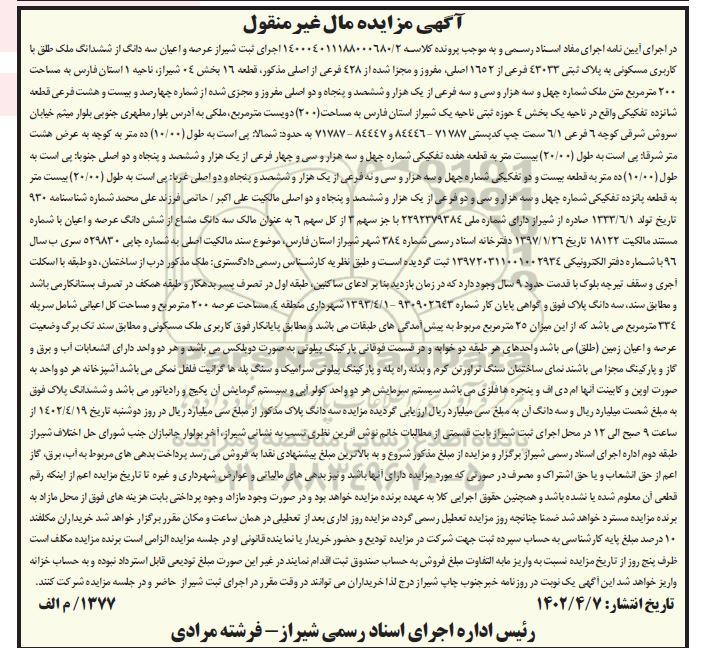 آگهی مزایده مال غیر منقول
در اجرای آیین نامه اجرای مفاد اسناد رسمی و به موجب پرونده کلاسه ۱۴۰۰۰۴۰۱۱۱۸۸۰۰۰۶۸۰/۲ اجرای ثبت شیراز عرصه و اعیان سه دانگ از ششدانگ ملک طلق با
کاربری مسکونی به پلاک ثبتی ۴۳۰۳۳ فرعی از ۱۶۵۲ اصلی، مفروز و مجزا شده از ۴۲۸ فرعی از اصلی مذکور، قطعه ۱۶ بخش ۰۴ شیراز، ناحیه ۱ استان فارس به مساحت
۲۰۰ مترمربع متن ملک شماره چهل و سه هزار و سی و سه فرعی از یک هزار و ششصد و پنجاه و دو اصلی مفروز و مجزی شده از شماره چهارصد و بیست و هشت فرعی قطعه
شانزده تفکیکی واقع در ناحیه یک بخش ۴ حوزه ثبتی ناحیه یک شیراز استان فارس به مساحت (۲۰۰) دویست مترمربع، ملکی به آدرس بلوار مطهری جنوبی بلوار میثم خیابان
سروش شرقی کوچه ۶ فرعی ۶/۱ سمت چپ کدپستی ۷۱۷۸۷ – ۸۴۴۴۶ و ۸۴۴۴۷ – ۷۱۷۸۷ به حدود: شمالا: پی است به طول (۱۰/۰۰) ده متر به کوچه به عرض هشت
متر شرقا: پی است به طول (۲۰/۰۰) بیست متر به قطعه هفده تفکیکی شماره چهل و سه هزار و سی و چهار فرعی از یک هزار و ششصد و پنجاه و دو اصلی جنوبا: پی است به
طول (۱۰/۰۰) ده متر به قطعه بیست و دو تفکیکی شماره چهل و سه هزار و سی و نه فرعی از یک هزار و ششصد و پنجاه و دو اصلی غربا: پی است به طول (۲۰/۰۰) بیست متر
به قطعه پانزده تفکیکی شماره چهل و سه هزار و سی و دو فرعی از یک هزار و ششصد و پنجاه و دو اصلی مالکیت علی اکبر / حاتمی فرزند علی محمد شماره شناسنامه ۹۳۰
تاریخ تولد ۱۳۳۳/۶/۱ صادره از شیراز دارای شماره ملی ۲۲۹۲۳۷۹۳۸۴ با جز سهم ۳ از کل سهم ۶ به عنوان مالک سه دانگ مشاع از شش دانگ عرصه و اعیان با شماره
مستند مالکیت ۱۸۱۲۲ تاریخ ۱۳۹۷/۱/۲۶ دفترخانه اسناد رسمی شماره ۳۸۴ شهر شیراز استان فارس، موضوع سند مالکیت اصلی به شماره چاپی ۵۲۹۸۳۰ سری ب سال
۹۶ با شماره دفتر الکترونیکی ۱۳۹۷۲۰۳۱۱۰۰۱۰۰۲۹۳۴ ثبت گردیده است و طبق نظریه کارشناس رسمی دادگستری: ملک مذکور درب از ساختمان، دو طبقه با اسکلت
آجری و سقف تیرچه بلوک با قدمت حدود ۹ سال وجود دارد که در زمان بازدید بنا بر ادعای ساکنین، طبقه اول در تصرف پسر بدهکار و طبقه همکف در تصرف بستانکار می باشد
و مطابق سند، سه دانگ پلاک فوق و گواهی پایان کار شماره ۹۳۰۹۰۲۶۴۳ – ۱۳۹۳/۴/۱ شهرداری منطقه ۴، مساحت عرصه ۲۰۰ مترمربع و مساحت کل اعیانی شامل سرپله
۳۳۴ مترمربع می باشد که از این میزان ۲۵ مترمربع مربوط به پیش آمدگی های طبقات می باشد و مطابق پایانکار فوق کاربری ملک مسکونی و مطابق سند تک برگ وضعیت
عرصه و اعیان زمین (طلق) می باشد واحدهای هر طبقه دو خوابه و در قسمت فوقانی پارکینگ پیلوتی به صورت دوبلکس می باشد و هر دو واحد دارای انشعابات آب و برق و
گاز و پارکینگ مجزا می باشند نمای ساختمان سنگ تراورتن کرم و بدنه راه پله و پارکینگ پیلوتی سرامیک و سنگ پله ها گرانیت فلفل نمکی می باشد آشپزخانه هر دو واحد به
صورت اوپن و کابینت آنها ام دی اف و پنجره ها فلزی می باشد سیستم سرمایش هر دو واحد کولر آبی و سیستم گرمایش آن پکیج و رادیاتور می باشد و ششدانگ پلاک فوق
به مبلغ شصت میلیارد ریال و سه دانگ آن به مبلغ سی میلیارد ریال ارزیابی گردیده مزایده سه دانگ پلاک مذکور از مبلغ سی میلیارد ریال در روز دوشنبه تاریخ ۱۴۰۲/۴/۱۹ از
ساعت ۹ صبح الی ۱۲ در محل اجرای ثبت شیراز بابت قسمتی از مطالبات خانم نوش آفرین نظری نسب به نشانی شیراز، آخر بولوار جانبازان جنب شورای حل اختلاف شیراز
طبقه دوم اداره اجرای اسناد رسمی شیراز برگزار و مزایده از مبلغ مذکور شروع و به بالاترین مبلغ پیشنهادی نقدا به فروش می رسد پرداخت بدهی های مربوط به آب، برق، گاز
اعم از حق انشعاب و یا حق اشتراک و مصرف در صورتی که مورد مزایده دارای آنها باشد و نیز بدهی های مالیاتی و عوارض شهرداری و غیره تا تاریخ مزایده اعم از اینکه رقم
قطعی آن معلوم شده یا نشده باشد و همچنین حقوق اجرایی کلا به عهده برنده مزایده خواهد بود و در صورت وجود مازاد، وجوه پرداختی بابت هزینه های فوق از محل مازاد به
برنده مزایده مسترد خواهد شد ضمنا چنانچه روز مزایده تعطیل رسمی گردد، مزایده روز اداری بعد از تعطیلی در همان ساعت و مکان مقرر برگزار خواهد شد خریداران مکلفند
۱۰ درصد مبلغ پایه کارشناسی به حساب سپرده ثبت جهت شرکت در مزایده تودیع و حضور خریدار یا نماینده قانونی او در جلسه مزایده الزامی است برنده مزایده مکلف است
ظرف پنج روز از تاریخ مزایده نسبت به واریز مابه التفاوت مبلغ فروش به حساب صندوق ثبت اقدام نمایند در غیر این صورت مبلغ تودیعی قابل استرداد نبوده و به حساب خزانه
واریز خواهد شد این آگهی یک نوبت در روزنامه خبرجنوب چاپ شیراز درج لذا خریداران می توانند در وقت مقرر در اجرای ثبت شیراز حاضر و در جلسه مزایده شرکت کنند.
تاریخ انتشار: ۱۴۰۲/۴/۷ ۱۳۷۷/ م الف
رئیس اداره اجرای اسناد رسمی شیراز – فرشته مرادی
ParsNamadData
۰۲۱-۸۸۳۴۹۶۷۰-۵